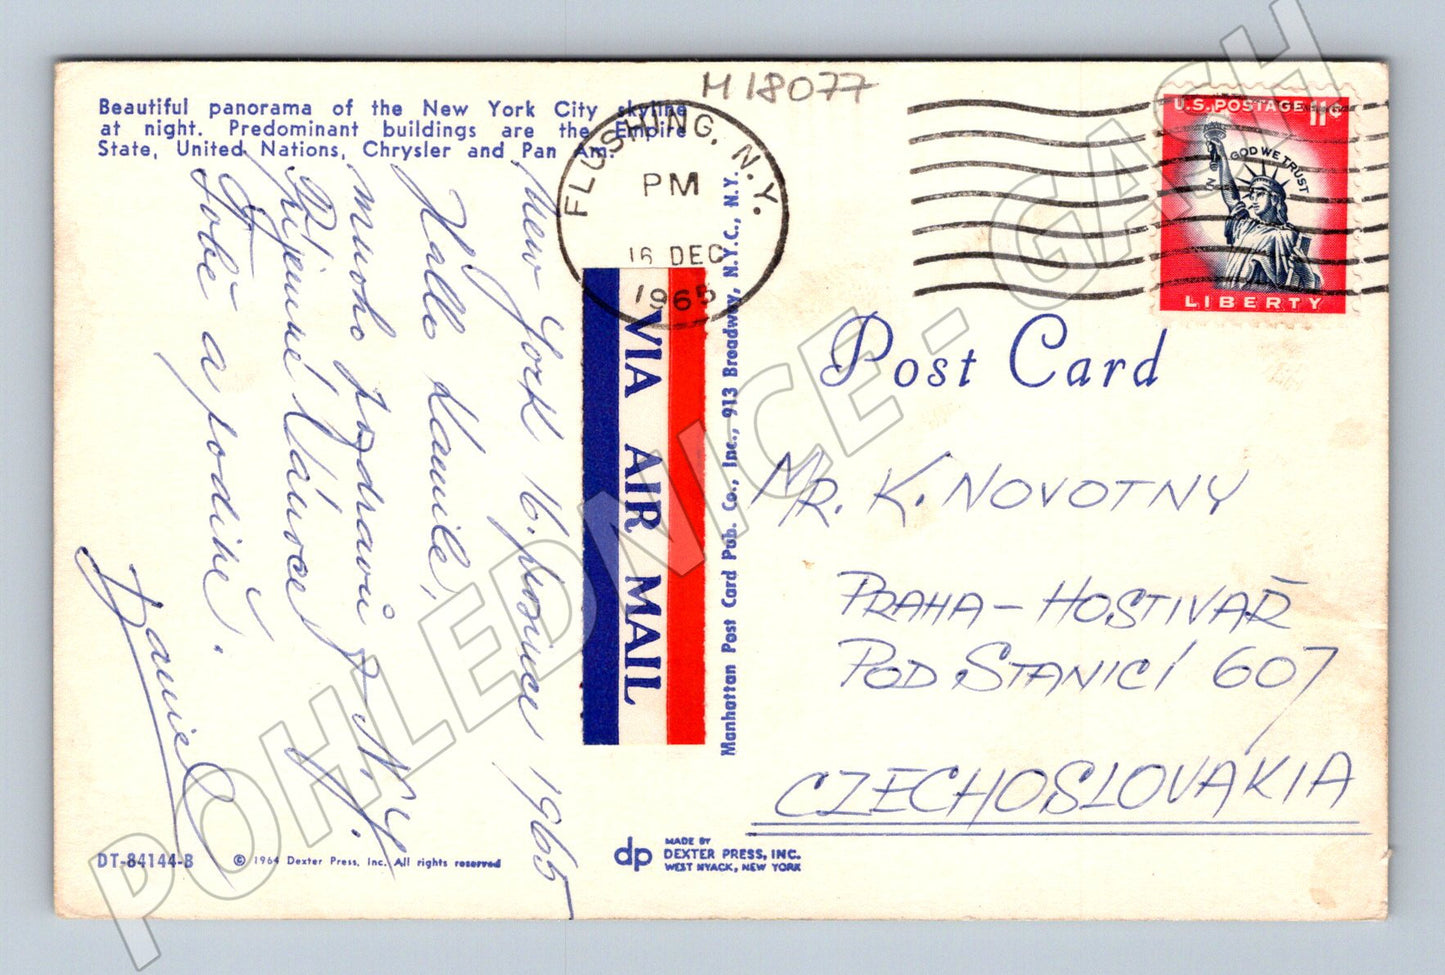 M18077
Beautiful panorama of the New York City skyline
at night. Predominant buildings are the Empire
State, United Nations, Chrysler and Pan Am.
FLUSHING, N.Y.
PM
16 DEC
1965
U.S. POSTAGE 11¢
IN GOD WE TRUST
LIBERTY
New York 16. prosince 1965
Hallo Kamile,
mnoho pozdravů z N.Y.
Příjemné Vánoce
Tobě a rodině.
Daniel
VIA AIR MAIL
Manhattan Post Card Pub. Co., Inc., 913 Broadway, N.Y.C., N.Y.
Post Card
MR. K. NOVOTNY
PRAHA - HOSTIVAŘ
POD STANICÍ 607
CZECHOSLOVAKIA
DT-84144-B
© 1964 Dexter Press, Inc. All rights reserved
dp
MADE BY
DEXTER PRESS, INC.
WEST NYACK, NEW YORK
POHLEDNICE - GASH